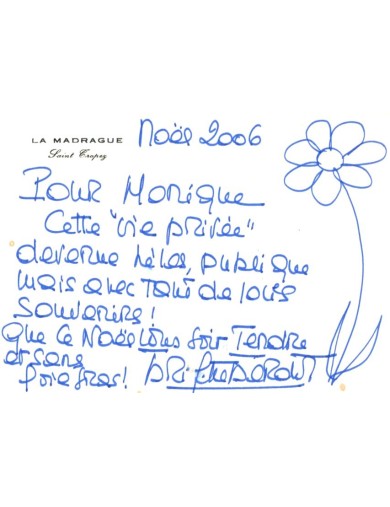 LA MADRAGUE
Saint Tropez
Noël 2006
Pour Monique
Cette "vie privée"
devenue hélas, publique
mais avec tant de jolis
souvenirs!
Que ce Noël vous soit Tendre
et sans
foie gras! Brigitte Bardot